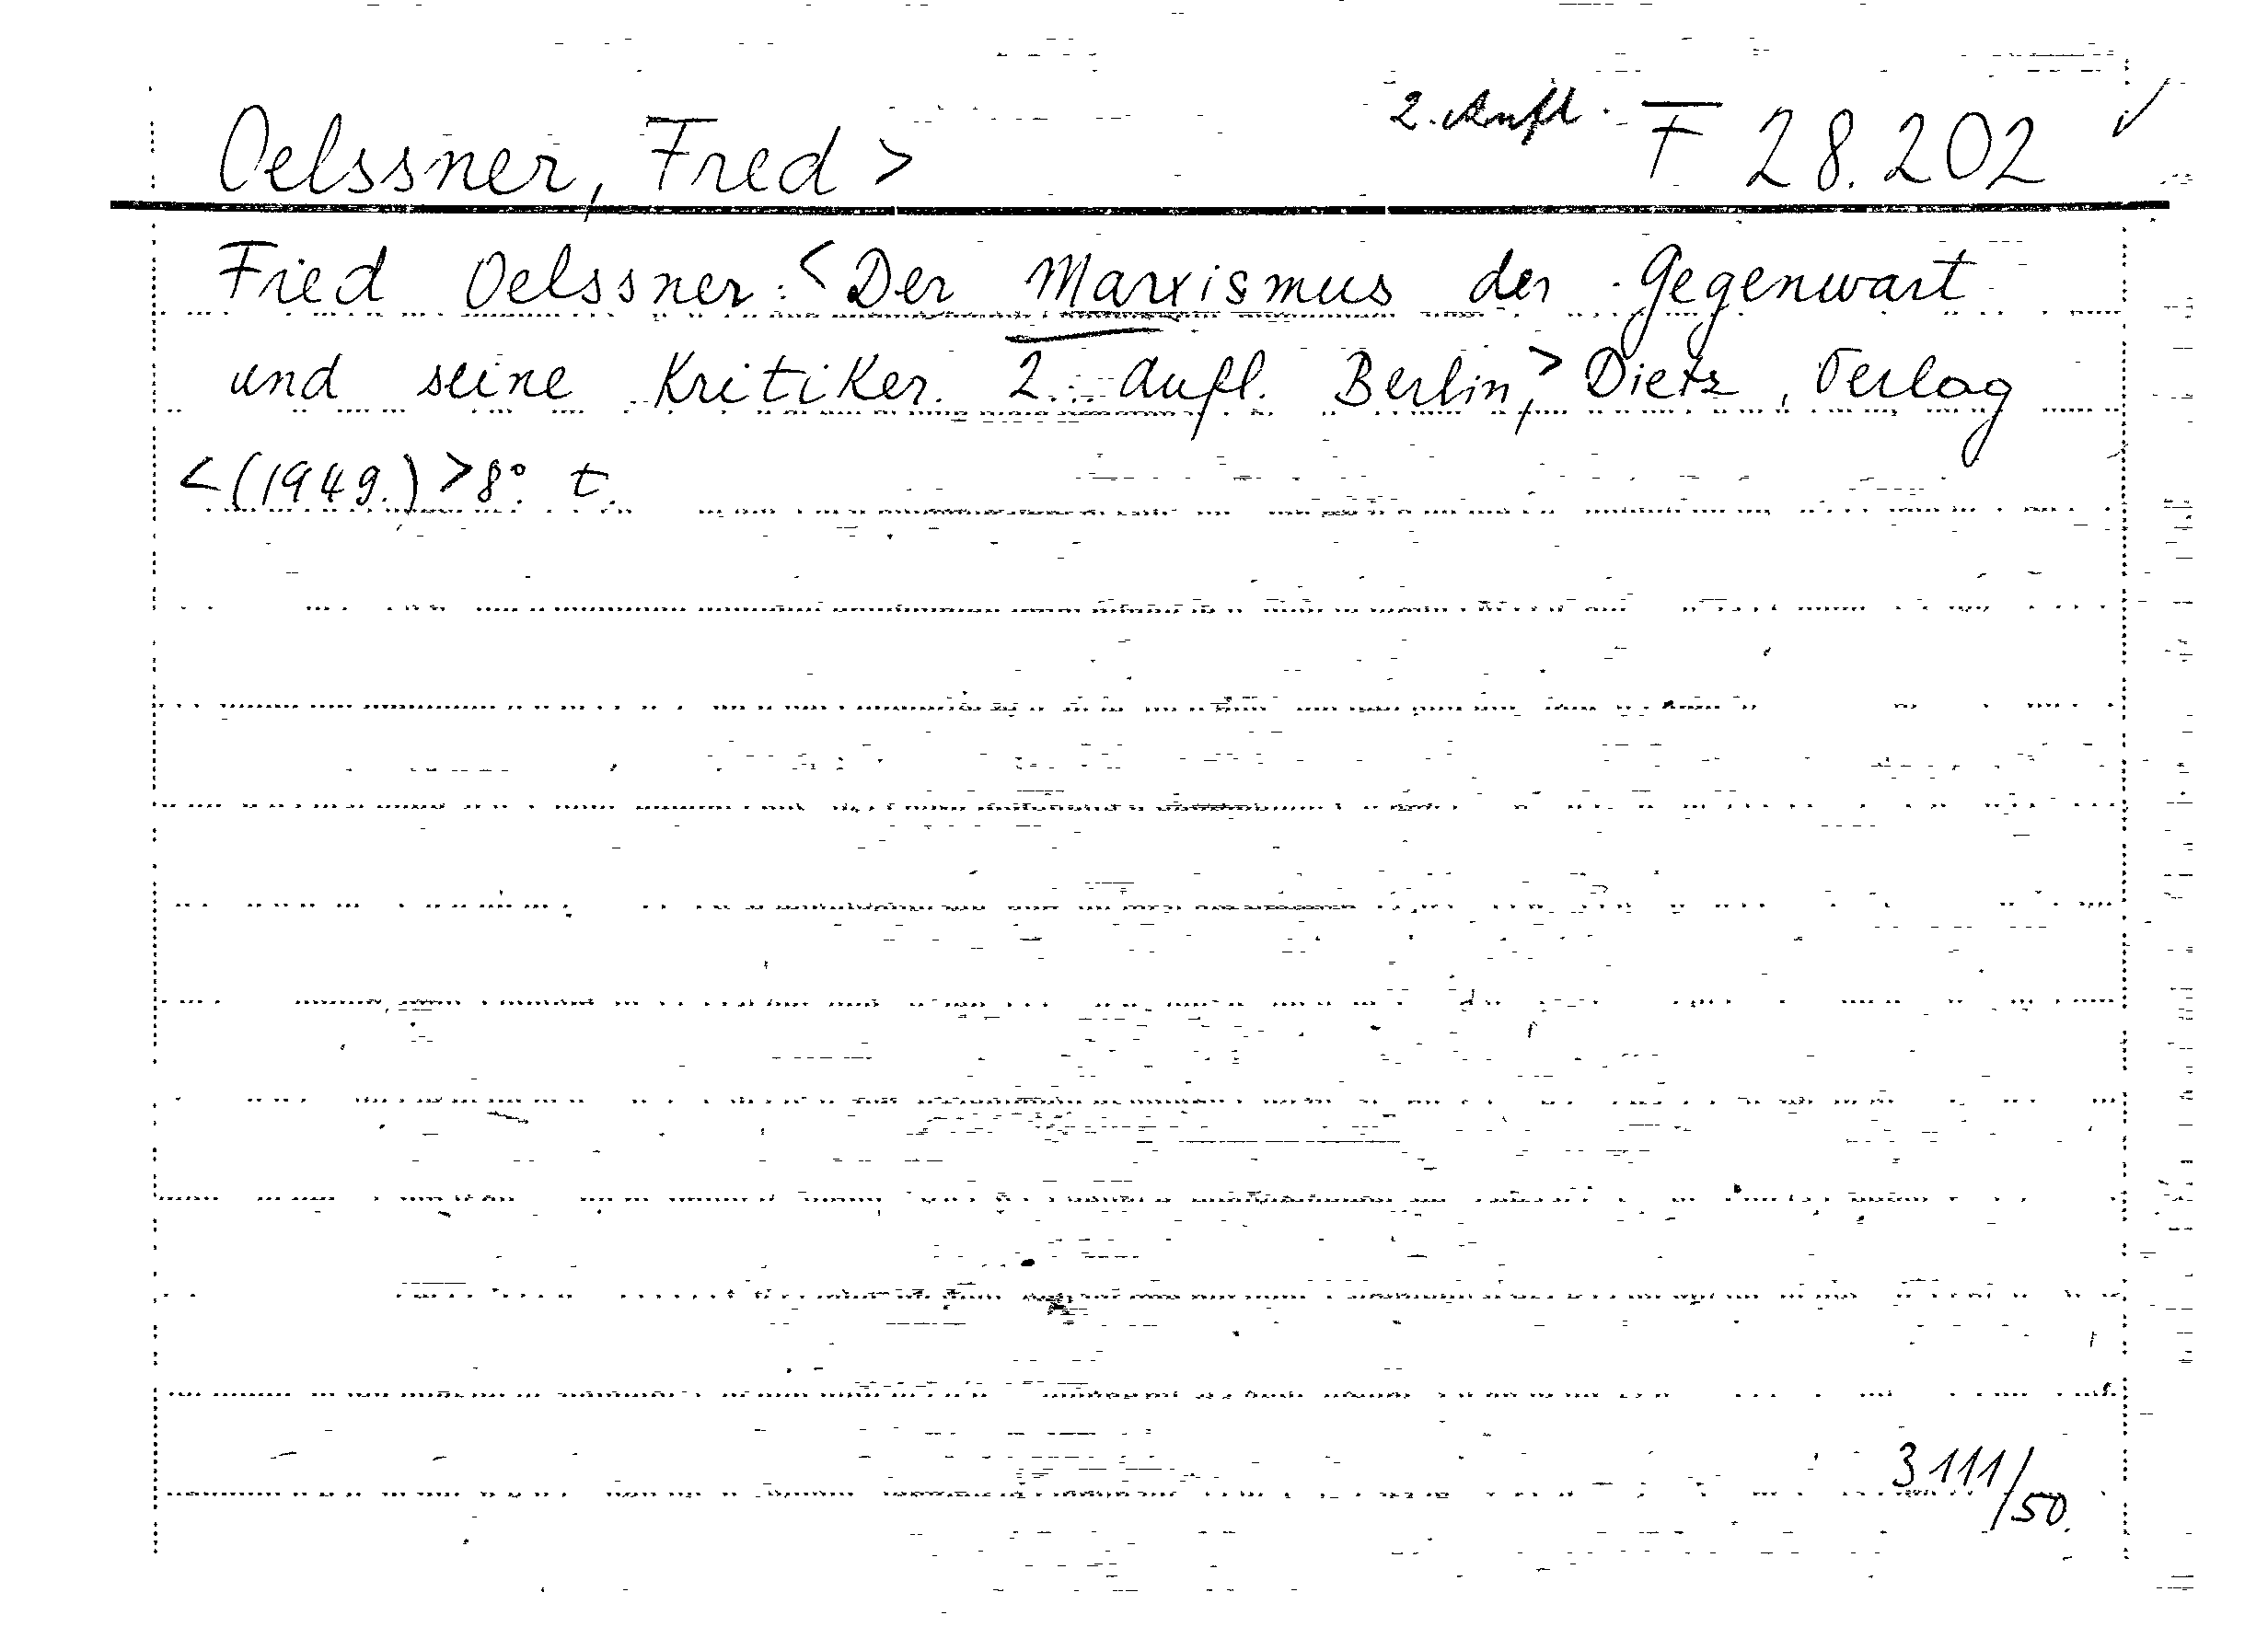 Oelssner, Fred > 2. Aufl. F 28.202
Fred Oelssner: < Der Marxismus der Gegenwart
und seine Kritiker. 2. Aufl. Berlin, > Dietz, Verlag
< (1949.) > 8°. t.
3111/50.